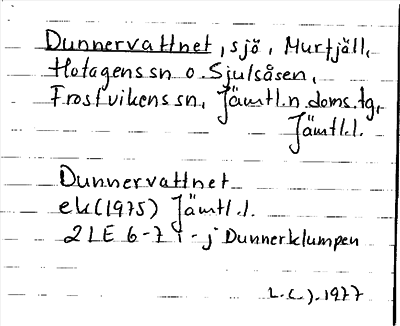 Dunnervattnet, sjö, Murfjäll,
Hotagens sn o. Sjulsåsen,
Frostvikens sn, Jämtl.n.doms.tg,
Jämtl.l.
Dunnervattnet
ek (1975) Jämtl.l.
21E 6-7 i-j Dunnerklumpen
1977